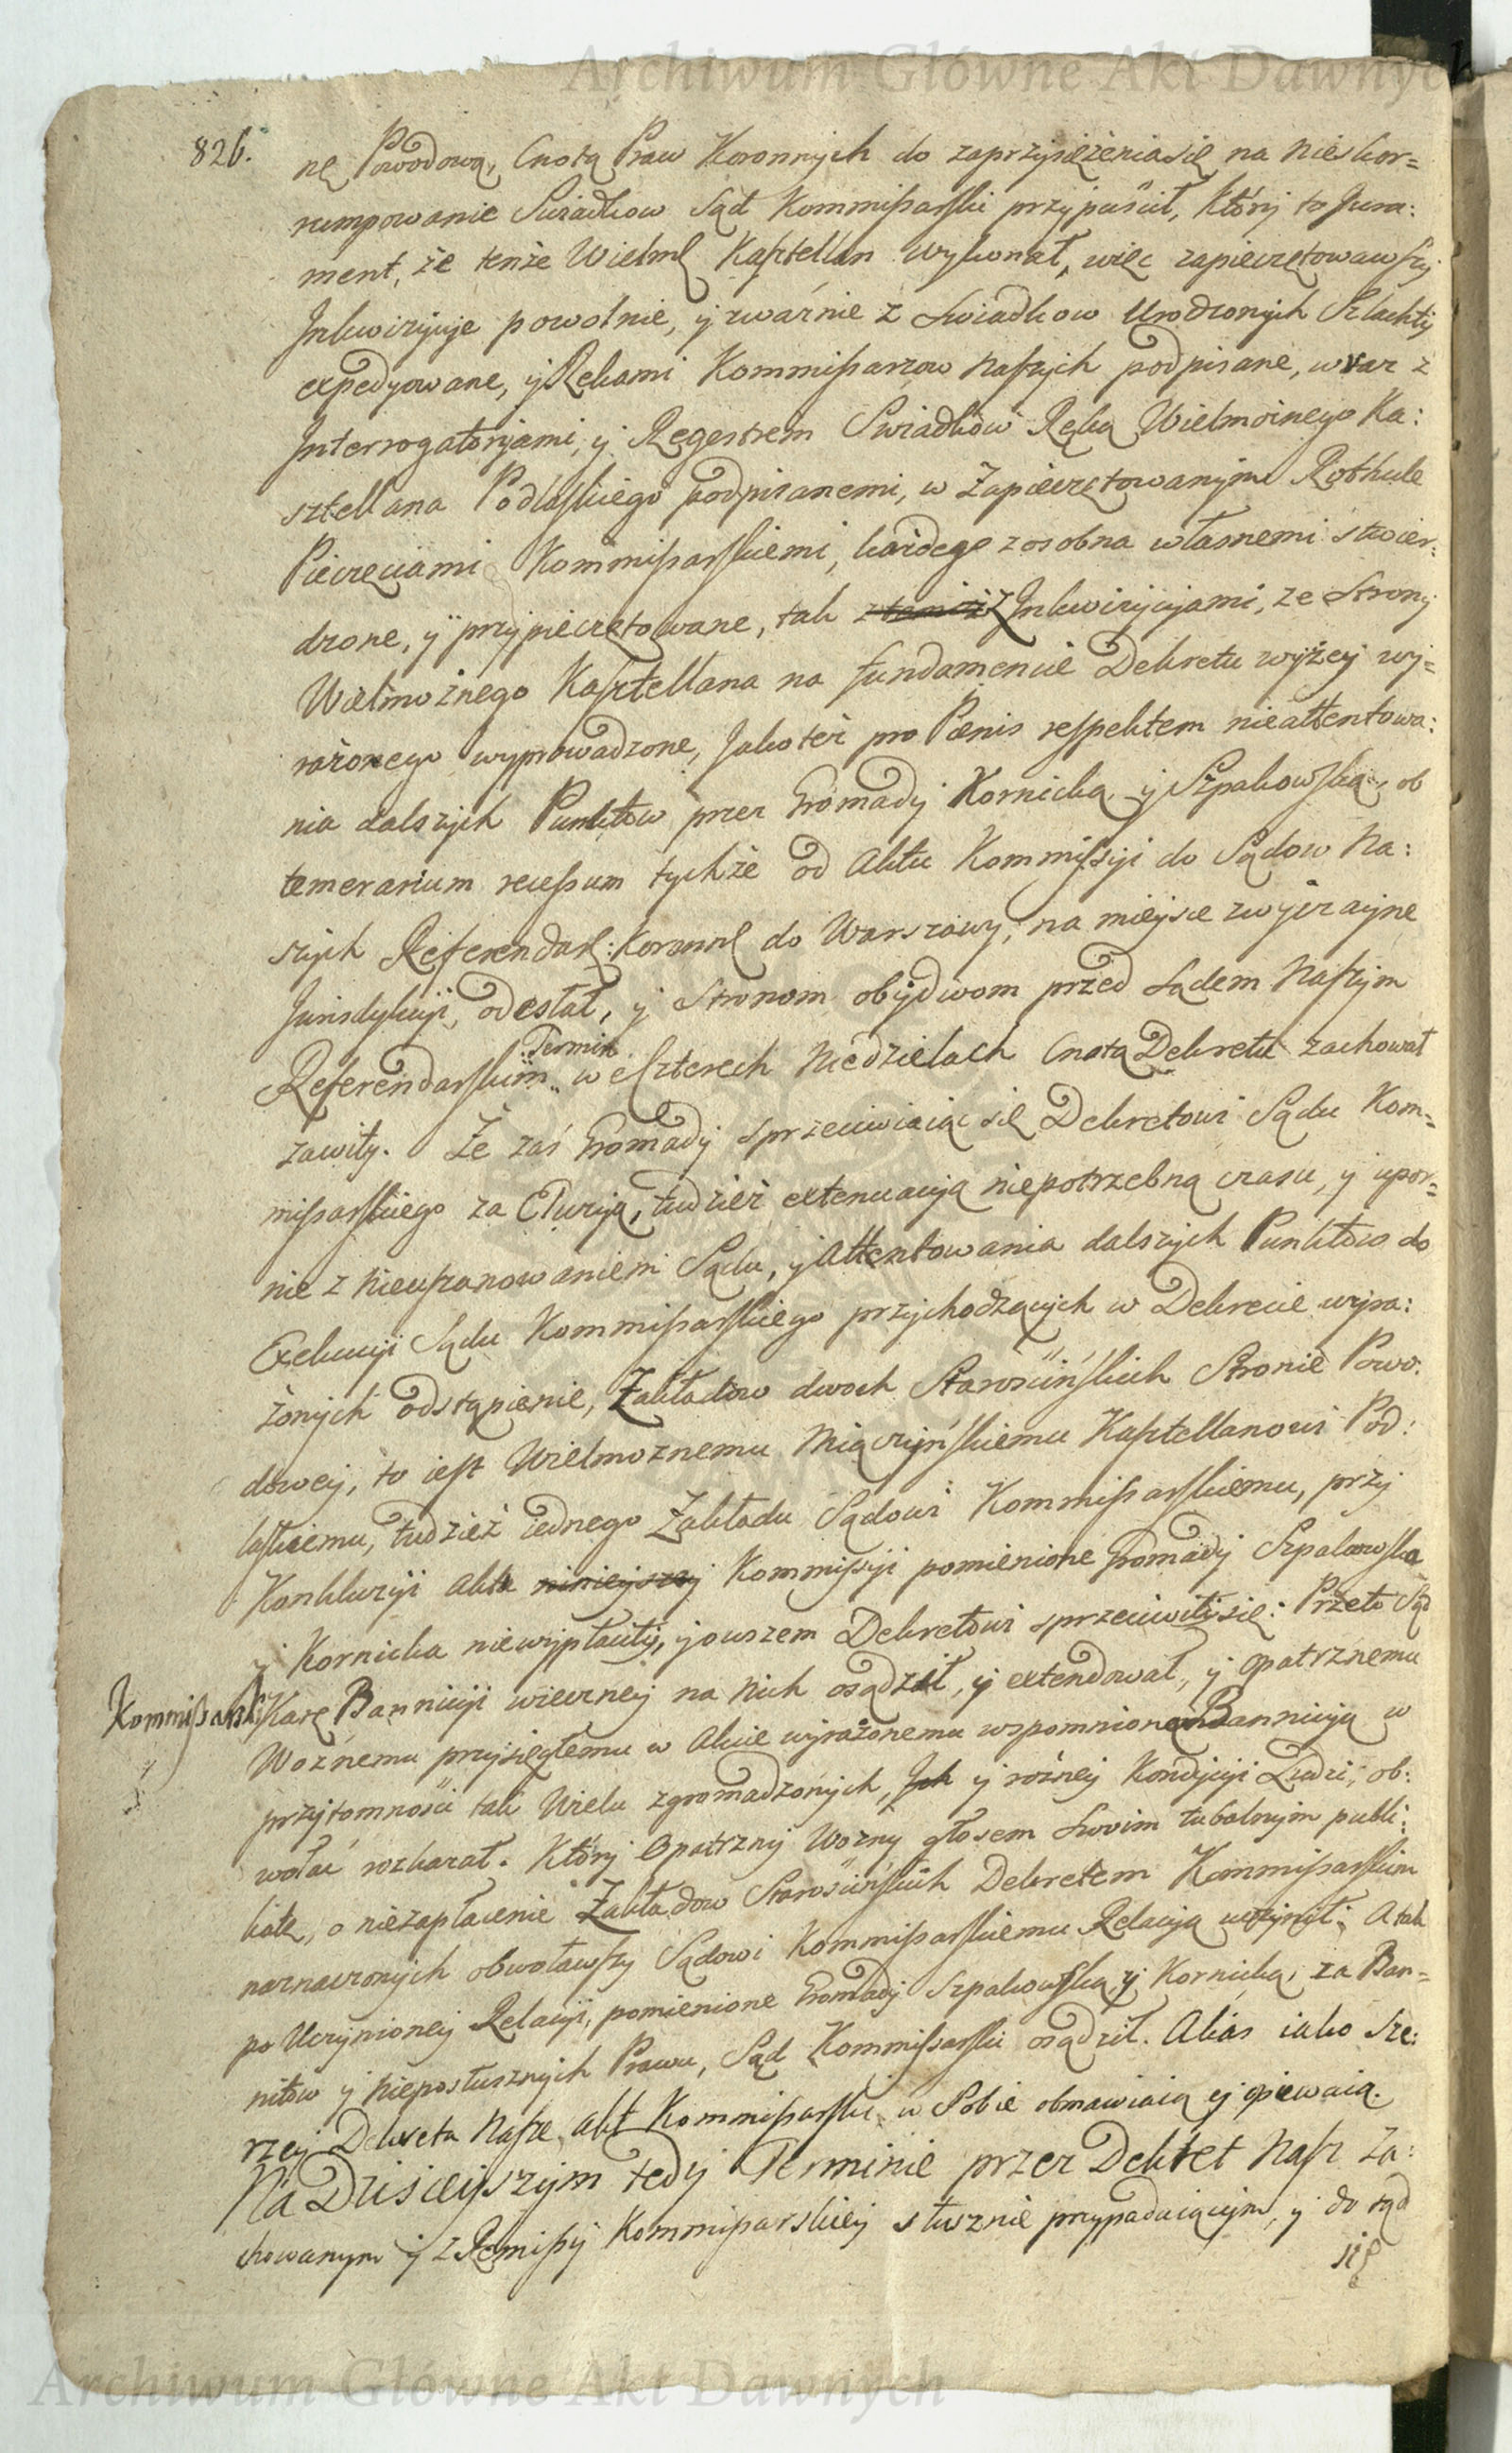 Archiwum Główne Akt Dawnych
826.
nę Powodową, Cnotą Praw Koronnych do zaprzysiężeniasię na nieskor=
rumpowanie Swiadkow Sąd Kommissarski przypuścił, Ktory to Jura:
ment, że tenże Wielmę Kasztellan wykonał, więc zapieczętowawszy
Inkwizycye powolnie, y zwaźnie z Swiadkow Urodzonych Szlachty
expedyowane, y Rękami Kommissarzow Naszych podpisane, wraz z
Interrogatoryami, y Regestrem Swiadkow Ręką Wielmożnego Ka:
sztellana Podlaskiego podpisanemi, w Zapieczętowanym Rothule
Pieczęciami Kommissarskiemi, każdego zosobna własnemi stwier:
dzone, y przypieczętowane, tak z temiż z Inkwizycyami, ze Strony
Wielmożnego Kasztellana na fundamencie Dekretu wyżey wy=
rażonego wyprowadzone, Jakoteż pro Pœnis respektem nieattentowa:
nia dalszych Punktow przez Gromady Kornicką y Szpakowską, ob
temerarium recessum tychże od Aktu Kommissyi do Sądow Na:
szych Referendarſ: Koronnę do Warszawy, na mieysce zwyczayne
Jurisdykcyi, odesłał, y Stronom obydwom przed Sądem Naszym
Termin
Referendarskim w Czterech Niedzielach Cnotą Dekretu zachował
zawity. Że zaś Gromady sprzeciwiaiąc się Dekretowi Sądu Kom=
missarskiego za Eluzyą, tudzież extenuacyą niepotrzebną czasu, y upor=
nie z nieuszanowaniem Sądu, y Attentowania dalszych Punktow do
Exekucyi Sądu Kommissarskiego przychodzących w Dekrecie wyra:
żonych odstąpienie, Zakładow dwoch Starościńskich Stronie Powo:
dowey, to iest Wielmoznemu Miączyńskiemu Kasztellanowi Pod:
laskiemu, tudzież iednego Zakładu Sądowi Kommissarskiemu, przy
Konkluzyi Akta niniejszej Kommissyi pomienione Gromady Szpakowska
y Kornicka niewypłaciły, y owszem Dekretowi sprzeciwiłysię: Przeto Sąd
Kommissarski Karę Bannicyi wieczney na Nich osądził, y extendował, y Opatrznemu
Woznemu przysięgłemu w Akcie wyrażonemu wspomnioną Bannicyą w
przytomności tak Wielu zgromadzonych, Jak y rożney Kondycyi Ludzi, ob:
wołać rozkazał. Ktory Opatrzny Wozny głosem Swoim tubalnym publi:
katę, o niezapłacenie Zakładow Starościńskich Dekretem Kommissarskim
naznaczonych obwoławszy Sądowi Kommissarskiemu Relacyą uczynił: A tak
po Uczynioney Relacyi, pomienione Gromady Szpakowską, y Kornicką, za Ban=
nitow y nieposłusznych Prawu, Sąd Kommissarski osądził. Alias iako Sze:
rzey Dekreta Nasze, Akt Kommissarski w Sobie obmawiaią y opiewaią.
Na Dzisieyszym tedy Terminie przez Dekret Nasz Za:
chowanym y z Remissy Kommissarskiey słusznie przypadaiącym, y do sąd
się
Archiwum Główne Akt Dawnych